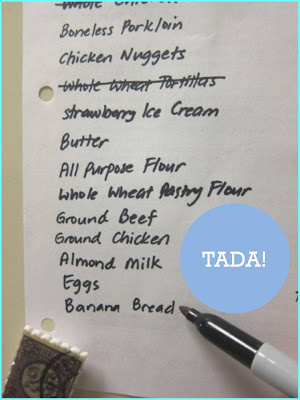 Whole Chicken
Boneless Porkloin
Chicken Nuggets
Whole Wheat Tortillas
Strawberry Ice Cream
Butter
All Purpose Flour
Whole Wheat Pastry Flour
Ground Beef
Ground Chicken
TADA!
Almond Milk
Eggs
Banana Bread